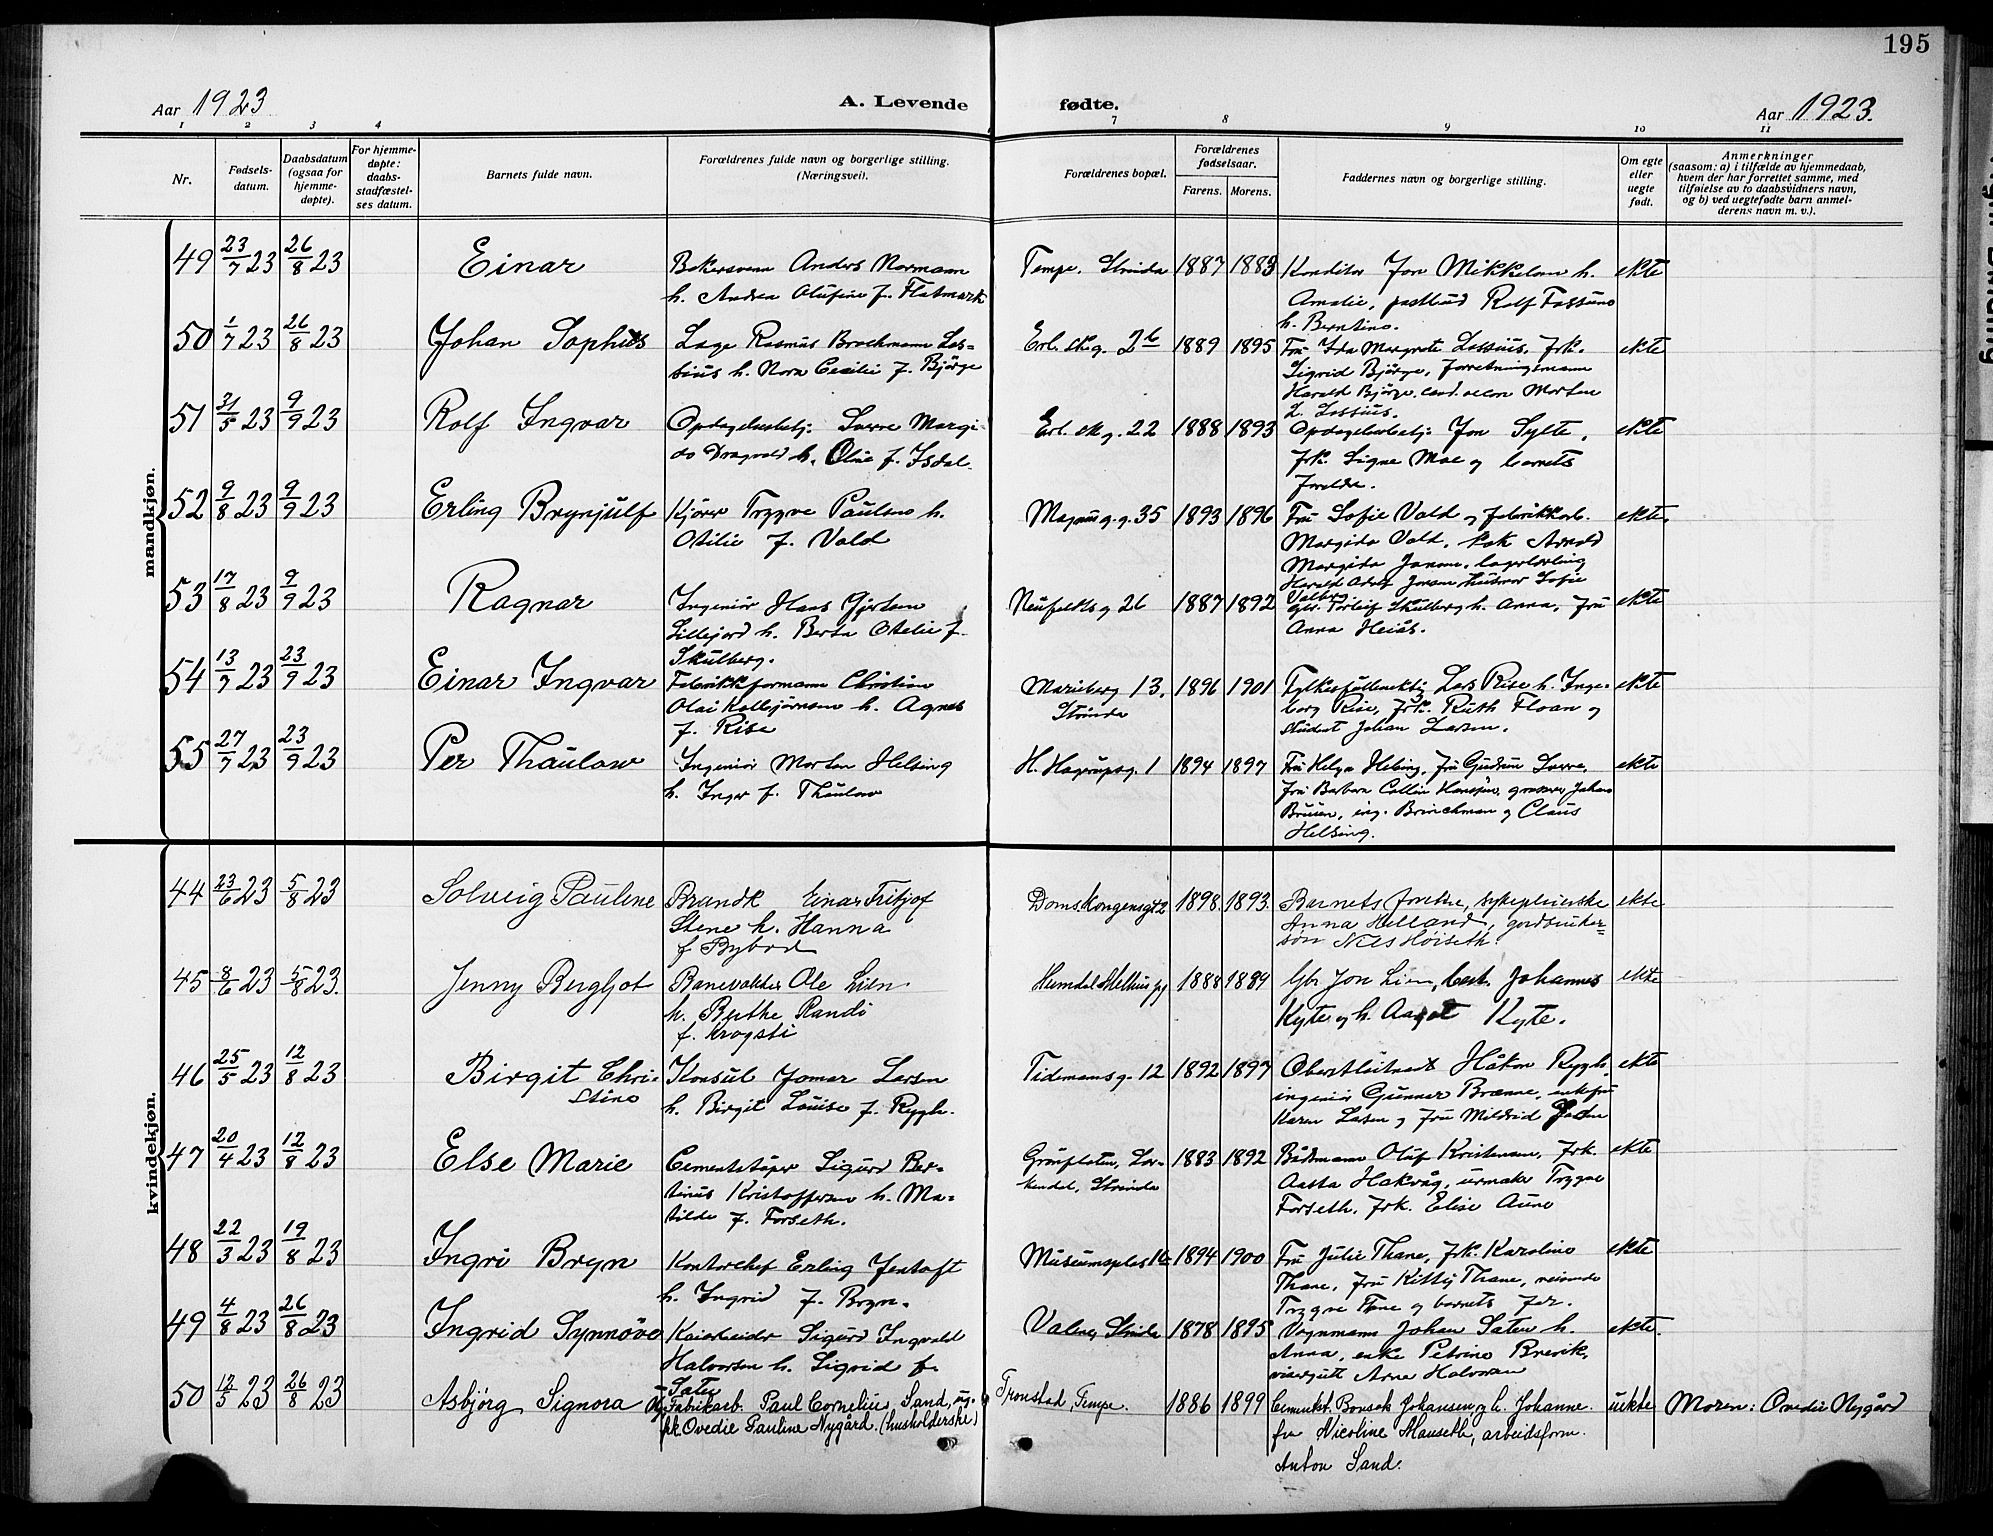 195
Aar 1923
A. Levende
fødte.
Aar 1923.
1 2 3 4 7 8 9 10 11
Nr.
Fødsels-
datum.
Daabsdatum
(ogsaa for
hjemme-
døpte).
For hjemme-
døpte:
daabs-
stadfæstel-
ses datum.
Barnets fulde navn.
Forældrenes fulde navn og borgerlige stilling.
(Næringsvei).
Forældrenes bopæl.
Forældrenes
fødselsaar.
Farens. Morens.
Faddernes navn og borgerlige stilling.
Om egte
eller
uegte
født.
Anmerkninger
(saasom: a) i tilfælde av hjemmedaab,
hvem der har forrettet samme, med
tilføielse av to daabsvidners navn,
og b) ved uegtefødte barn anmel-
derens navn m. v.).
mandkjøn.
49 23/7 23 26/8 23 Einar Bakersvenn Anders Normann Tempe, Strinda 1887 1883 Konditor Jon Mikkelsen h. ekte
h. Andrea Olufine f. Flatmark Amalie, postbud Rolf
h. Berntine.
50 1/7 23 26/8 23 Johan Sophus Læge Rasmus Brochmann Los- Erl. Sk. g. 2b 1889 1895 Fru Ida Margrete Lossius, Frk. ekte
sius h. Nora Cecilie f. Bjørge Sigrid Bjørge, forretningsmann
Harald Bjørge, cand. oecon Morten
L. Lossius.
51 31/5 23 9/9 23 Rolf Ingvar Opdagelsesbetj. Sverre Margi- Erl. Sk g. 22 1888 1893 Opdagelsesbetj. Jon Sylte, ekte
do Dragvold h. Oline f. Isdal. frk. Signe Moe og barnets
foreldre.
52 9/8 23 9/9 23 Erling Brynjulf Kjører Trygve Paulsen h. Magnus g. g. 35 1893 1896 Fru Sofie Vold og fabrikkarb. ekte.
Otilie f. Vold Margido Vold, kok Arnold
Margido Jansen, lagerlærling
Harald Adolf Jansen
53 17/8 23 9/9 23 Ragnar Ingeniør Hans Gjertsen Neufeldts g 26 1887 1892 Torleif Skulberg h. Anna, Fru ekte
Lillejord h. Berta Otelie f. Anna Heiås.
Skulberg.
54 13/7 23 23/9 23 Einar Ingvar Fabrikkformann Christian Marieberg 13, 1896 1901 Fylkesfullmektig Lars Rise h. Inge- ekte
Olai Kolbjørnsen h. Agnes Strinda borg Rise, frk. Ruth Floan og
f. Rise student Johan Larsen.
55 27/7 23 23/9 23 Per Thaulow Ingeniør Morten Helsing H. Hagerups g. 1 1894 1897 Fru Helga Helsing, fru Gudrun Sverre, ekte
h. Inger f. Thaulow Fru Barbara Collin Hansson, grosserer Johan
Bruun, ing. Brinchman og Claus
Helsing.
kvindekjøn.
44 23/6 23 5/8 23 Solveig Pauline Brandk Einar Fritjof Doms. Kongensgt 2 1898 1893 Barnets foreldre, sykepleierske ekte
Stene h. Hanna Anna Helland, gårdbruker-
søn Nils Høiseth.
45 8/6 23 5/8 23. Jenny Bergljot Banevokter Ole Lien Heimdal Melhus pg 1888 1884 Gbr Jon Lien, Johannes ekte
h. Berthe Randi Kyte og h. Aagot Kyte.
f. Krogsti
46 25/5 23 12/8 23 Birgit Chri- Konsul Jomar Larsen Tidemansg. 12 1892 1897 Oberstløitnant Håkon Rygh, ekte
stine h. Birgit Louise f. Rygh. ingeniør Gunnar Brænne, enkefru
Karen Larsen og fru Mildrid
47 20/4 23 12/8 23 Else Marie Cementstøper Sigurd Ber- Lar- 1883 1892 Båtsmann Oluf Kristensen, Frk. ekte
tinus Kristoffersen h. Ma- kendal, Strinda Aasta Hakvåg, urmaker Trygve
tilde f. Forseth. Forseth, frk. Elise Aune
48 22/3 23 19/8 23 Ingri Bryn Kontorchef Erling Jentoft Museumsplas 1b 1894 1900 Fru Julie Thane, frk. Karoline ekte
h. Ingrid f. Bryn. Thane, fru Kitty Thane,
Trygve Thane og barnets far.
49 4/8 23 26/8 23 Ingrid Synnøve Kaiarbeider Sigurd Ingvald Strinda 1878 1895 Vognmann Johan Sæter h. ekte.
Halvorsen h. Sigrid f. Anna, enke Petrine Brevik,
Sæter visergutt Arne Halvorsen
50 12/3 23 26/8 23 Asbjörg Signora Fabrikarb. Paul Cornelius Sand, ug. og Tronstad, Tempe. 1886 1899 Cementst. Johansen og h. Johanne. uekte Moren: Ovedie Nygård
pk. Ovedie Pauline Nygård. (husholderske) fru Nicoline Mauseth, arbeidsform.
Anton Sand.